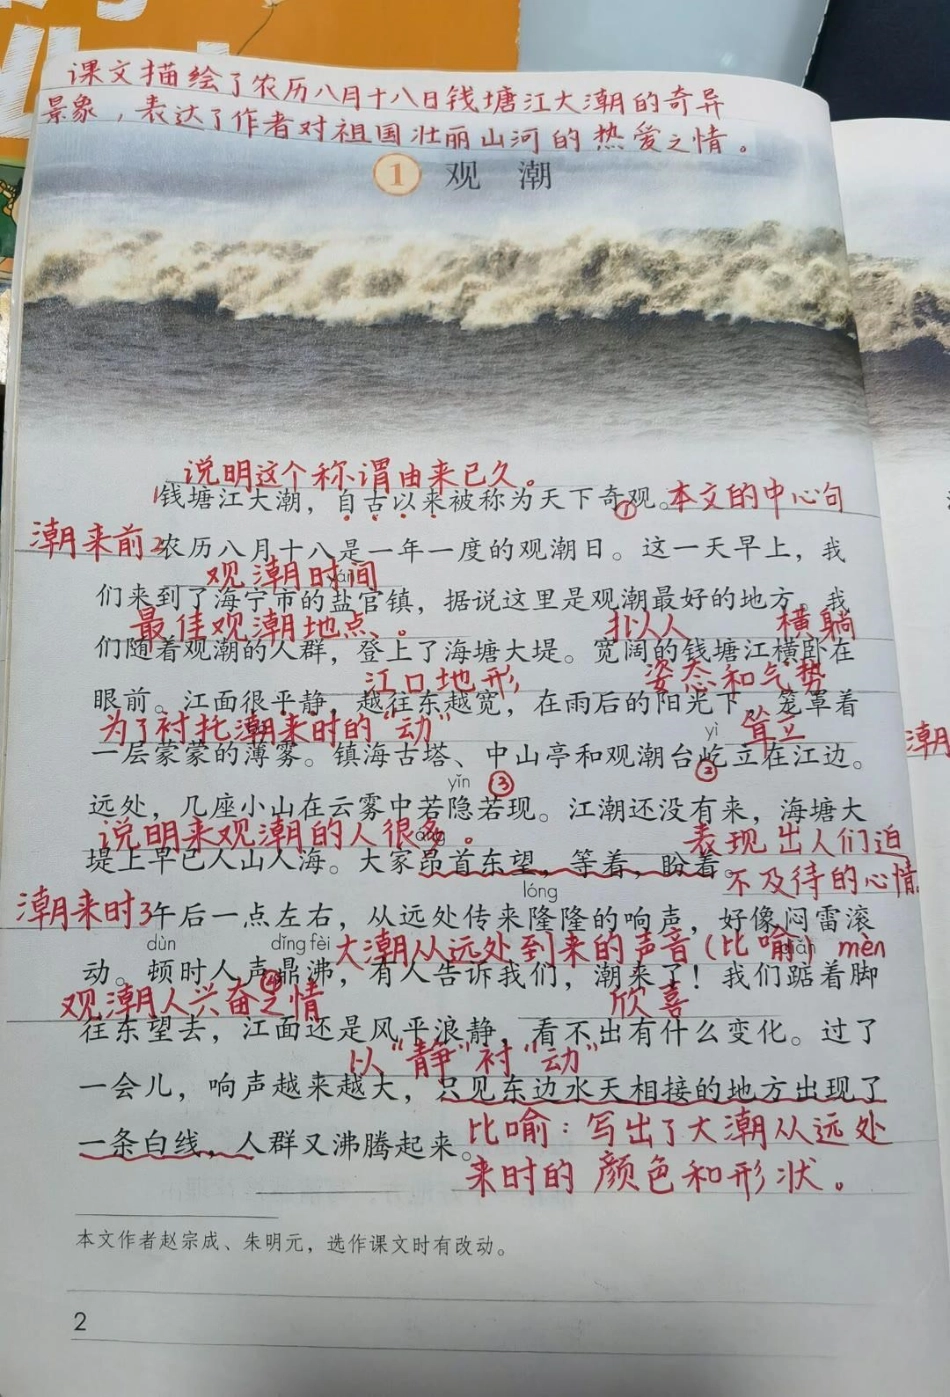 课文描绘了农历八月十八日钱塘江大潮的奇异
景象，表达了作者对祖国壮丽山河的热爱之情。
1 观 潮
说明这个称谓由来已久。
1钱塘江大潮，自古以来被称为天下奇观。本文的中心句
①
潮来前2农历八月十八是一年一度的观潮日。这一天早上，我
观潮时间
们来到了海宁市的盐官镇，据说这里是观潮最好的地方。我
最佳观潮地点。 扑人人 横躺
们随着观潮的人群，登上了海塘大堤。宽阔的钱塘江横卧在
江口地形 姿态和气势
眼前。江面很平静，越往东越宽，在雨后的阳光下，笼罩着
为了衬托潮来时的“动” yì 耸立
一层蒙蒙的薄雾。镇海古塔、中山亭和观潮台屹立在江边。
yǐn ③ ②
远处，几座小山在云雾中若隐若现。江潮还没有来，海塘大
说明来观潮的人很多。 表现出人们迫
堤上早已人山人海。大家昂首东望，等着，盼着。
不及待的心情
lóng
潮来时3午后一点左右，从远处传来隆隆的响声，好像闷雷滚
dùn dǐng fèi 大潮从远处到来的声音（比喻） mèn
动。顿时人声鼎沸，有人告诉我们，潮来了！我们踮着脚
④
观潮人兴奋之情 欣喜
往东望去，江面还是风平浪静，看不出有什么变化。过了
以“静”衬“动”
一会儿，响声越来越大，只见东边水天相接的地方出现了
一条白线，人群又沸腾起来。
比喻：写出了大潮从远处
来时的颜色和形状。
本文作者赵宗成、朱明元，选作课文时有改动。
2
潮